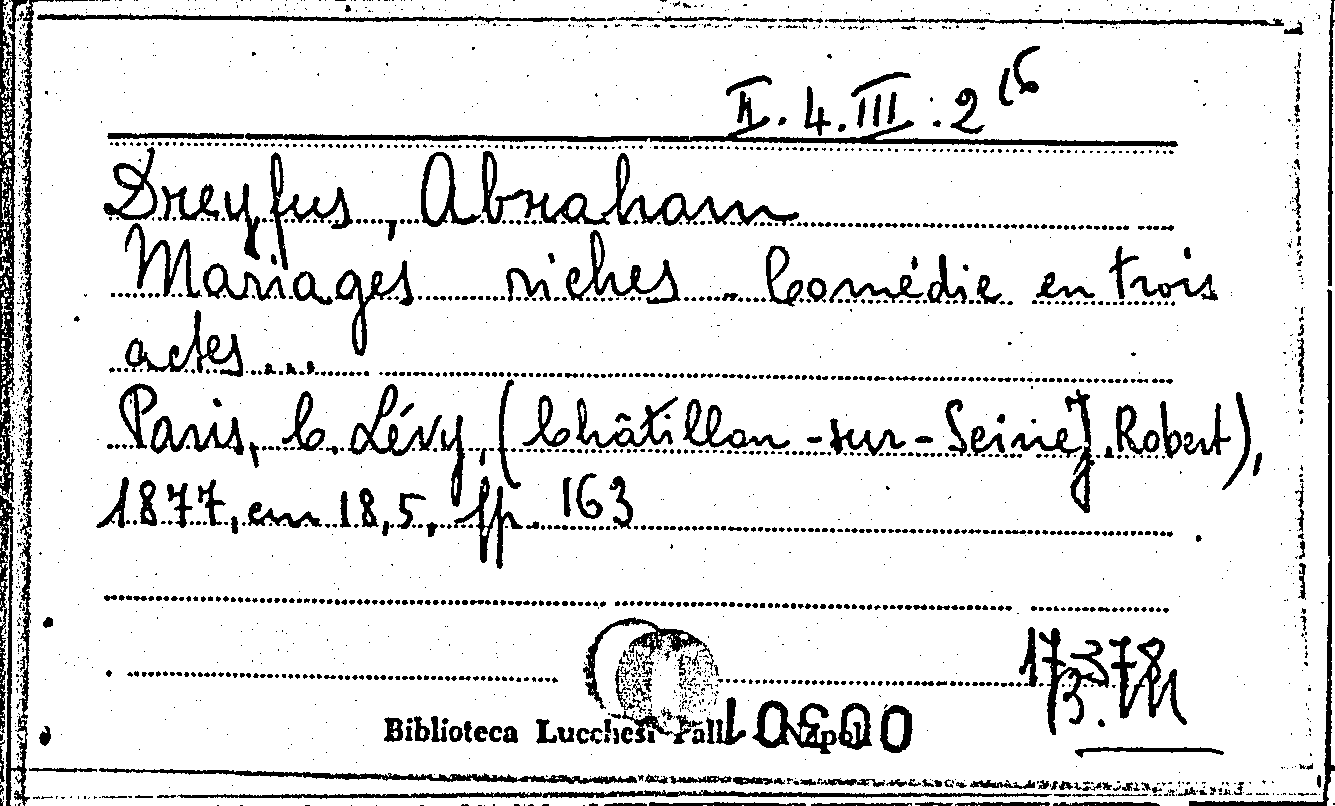 II.4.III:2 (6
Dreyfus, Abraham
Mariages riches. Comédie en trois
actes...
Paris, C. Lévy, (Châtillon-sur-Seine, J. Robert),
1877, cm 18,5, pp. 163
17378
Biblioteca Lucchesi Palli Napoli